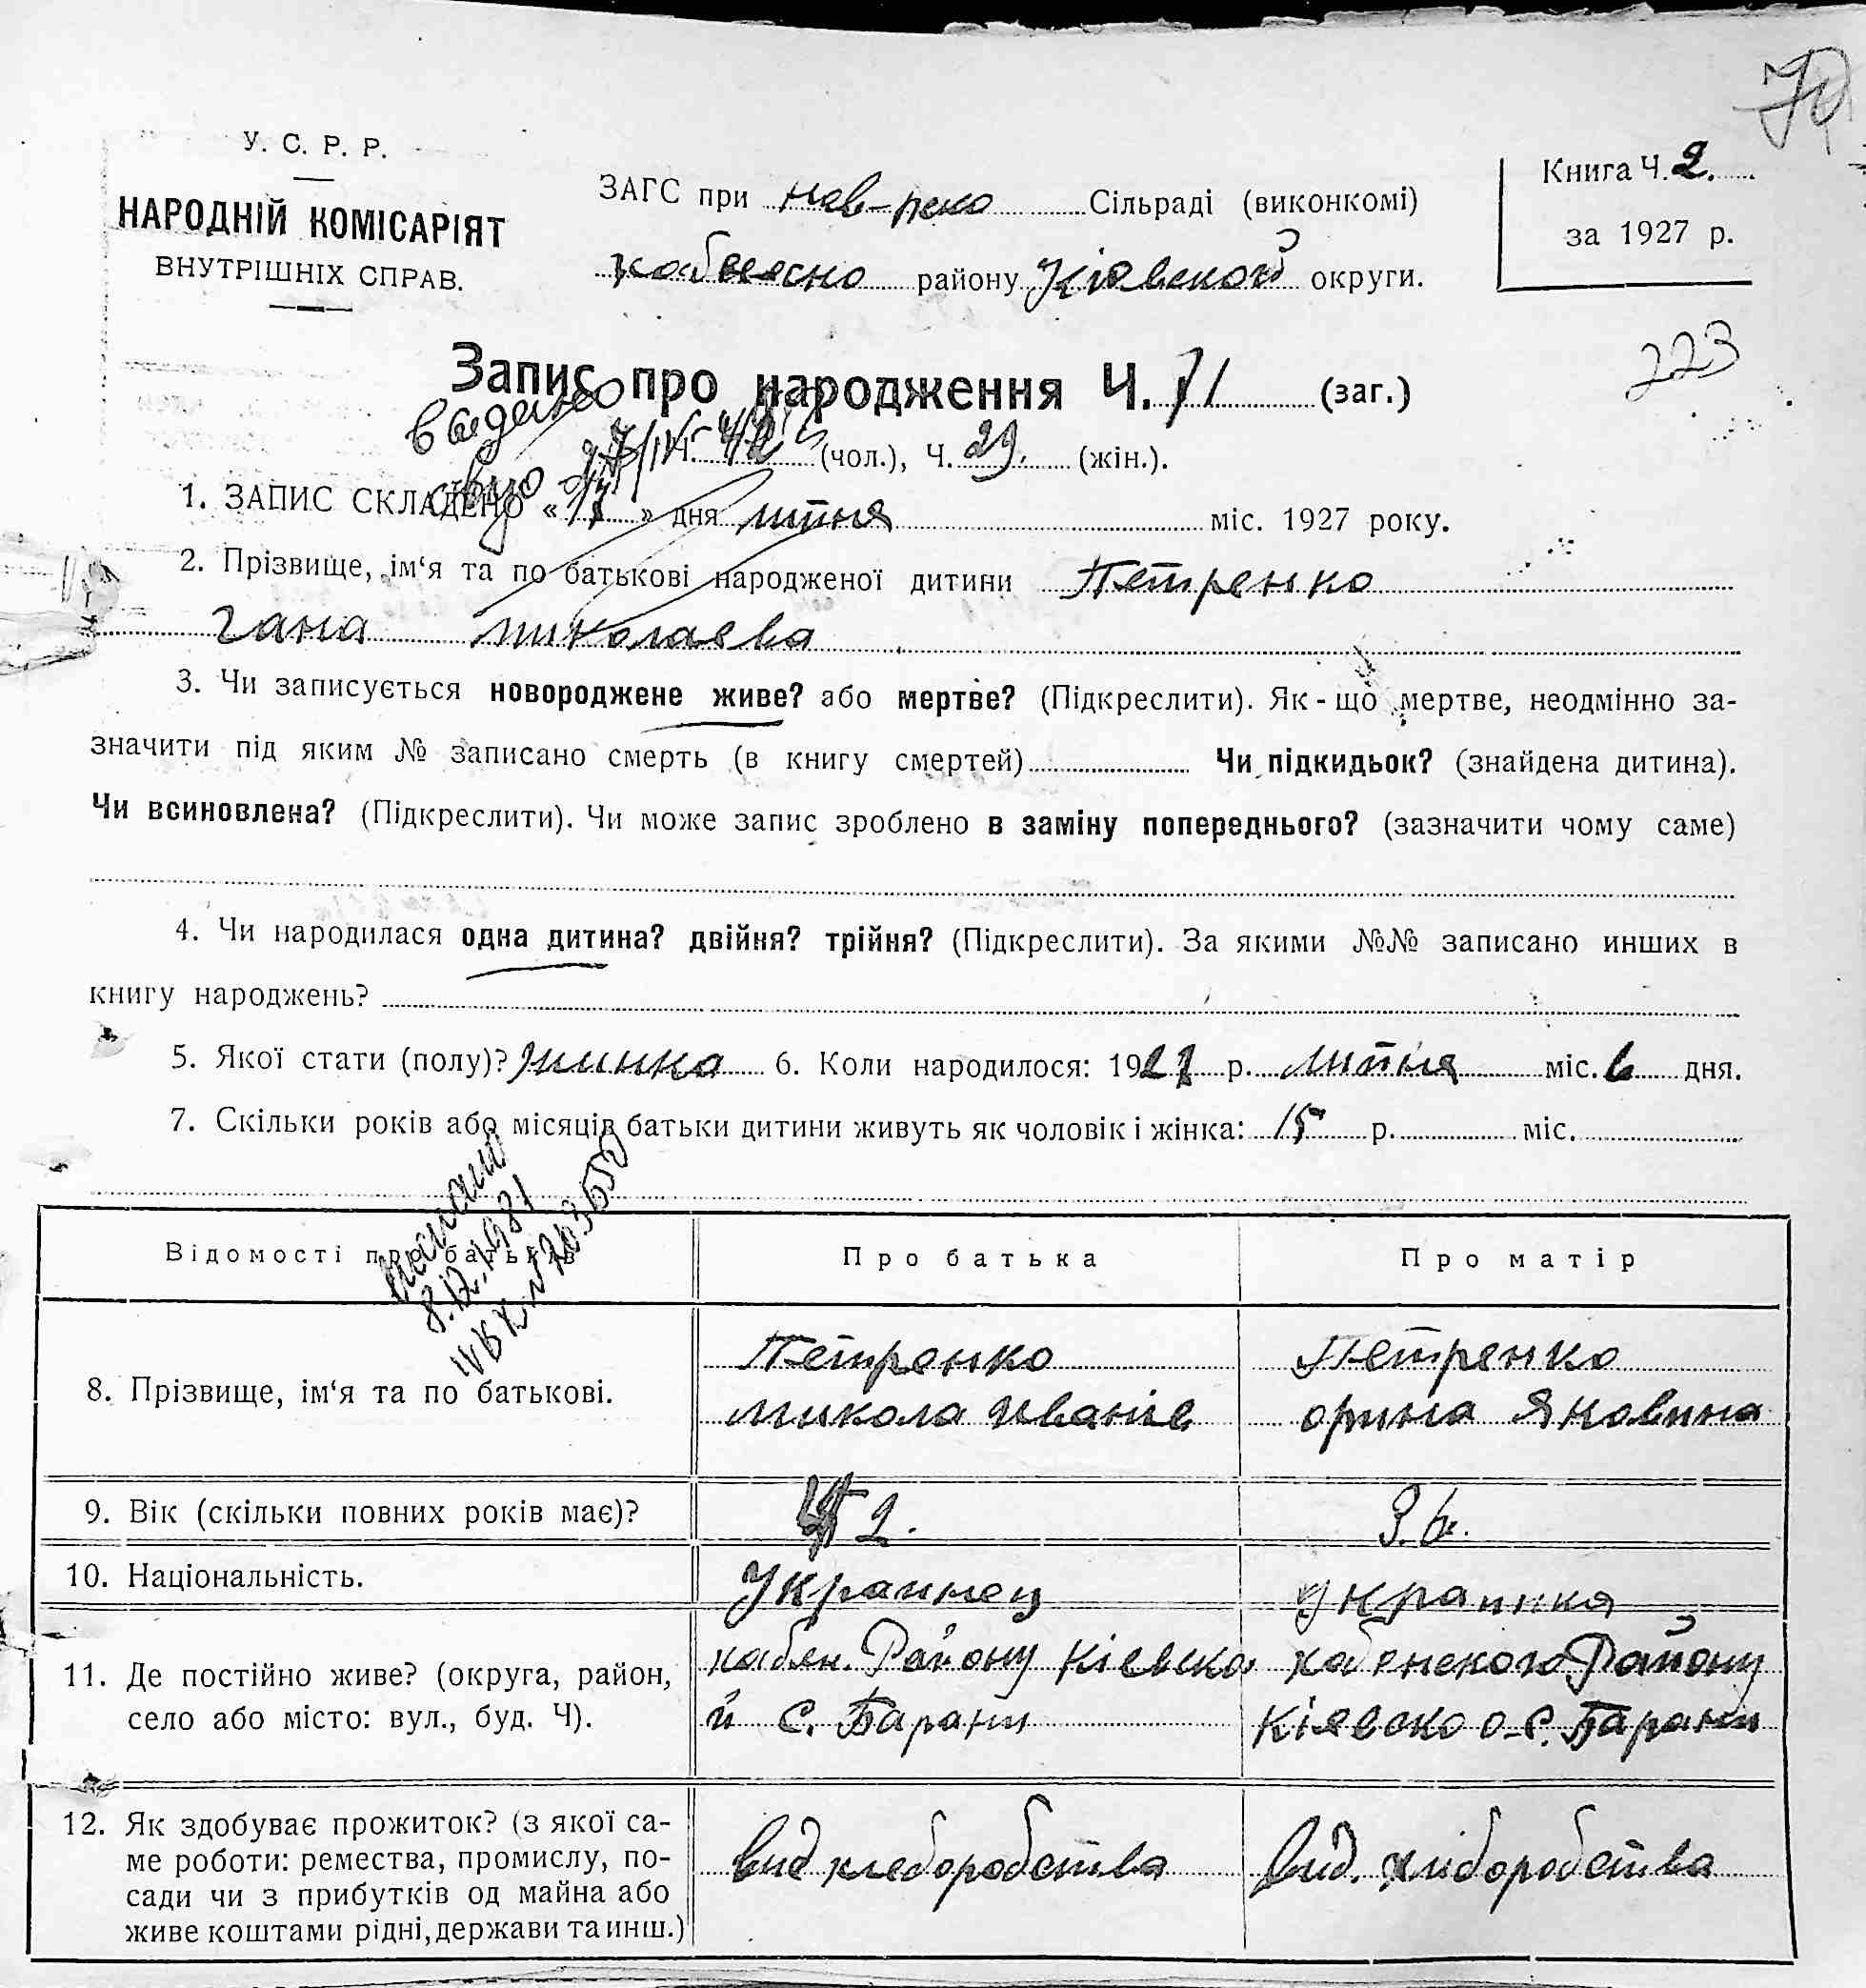 70
У. С. Р. Р.
НАРОДНІЙ КОМІСАРІЯТ
ВНУТРІШНІХ СПРАВ.
ЗАГС при Сільраді (виконкомі)
району Кіявской округи.
Книга Ч. 2.
за 1927 р.
223
Запис про народження Ч. 71 (заг.)
Ч. (чол.), Ч. 29. (жін.).
видано
1. ЗАПИС СКЛАДЕНО « 17 » дня липня міс. 1927 року.
2. Прізвище, ім‘я та по батькові народженої дитини Петренко
Гана Миколаева
3. Чи записується новороджене живе? або мертве? (Підкреслити). Як - що мертве, неодмінно за-
значити під яким № записано смерть (в книгу смертей) Чи підкидьок? (знайдена дитина).
Чи всиновлена? (Підкреслити). Чи може запис зроблено в заміну попереднього? (зазначити чому саме)
4. Чи народилася одна дитина? двійня? трійня? (Підкреслити). За якими №№ записано инших в
книгу народжень?
5. Якої стати (полу)? жинка 6. Коли народилося: 1927 р. липня міс. 6 дня.
7. Скільки років або місяців батьки дитини живуть як чоловік і жінка: 15 р. міс.
8.12.1981
Відомості про батьків
Про батька
Про матір
8. Прізвище, ім‘я та по батькові.
Петренко
Микола Иванів
Петренко
орина Яковина
9. Вік (скільки повних років має)?
36.
10. Національність.
Украинец
украинка
11. Де постійно живе? (округа, район,
село або місто: вул., буд. Ч).
хабян. Району Кіевско
й С. Барани
хабенского Району
Кіявско о. С. Барани
12. Як здобуває прожиток? (з якої са-
ме роботи: ремества, промислу, по-
сади чи з прибутків од майна або
живе коштами рідні, держави та инш.)
вид хлеборобства
вид. хлиборобства